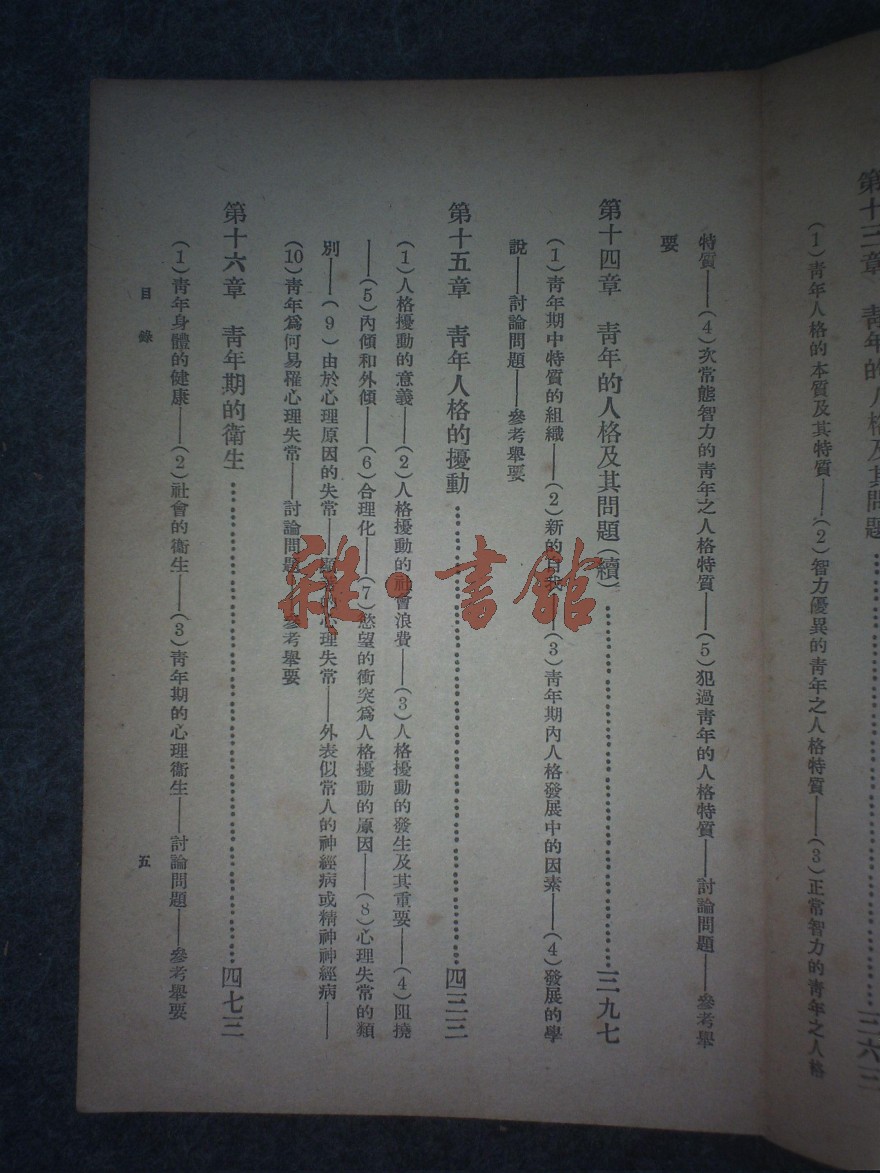 第十三章　青年的人格及其問題……三六三
（1）青年人格的本質及其特質——（2）智力優異的青年之人格特質——（3）正常智力的青年之人格
特質——（4）次常態智力的青年之人格特質——（5）犯過青年的人格特質——討論問題——參考舉
要
第十四章　青年的人格及其問題（續）……三九七
（1）青年期中特質的組織——（2）新的自我——（3）青年期內人格發展中的因素——（4）發展的學
說——討論問題——參考舉要
第十五章　青年人格的擾動……四三三
（1）人格擾動的意義——（2）人格擾動的社會浪費——（3）人格擾動的發生及其重要——（4）阻撓
——（5）內傾和外傾——（6）合理化——（7）慾望的衝突爲人格擾動的原因——（8）心理失常的類
別——（9）由於心理原因的失常——的心理失常——外表似常人的神經病或精神神經病——
（10）青年爲何易罹心理失常——討論問題——參考舉要
第十六章　青年期的衛生……四七三
（1）青年身體的健康——（2）社會的衛生——（3）青年期的心理衛生——討論問題——參考舉要
目錄
五
雜·書館